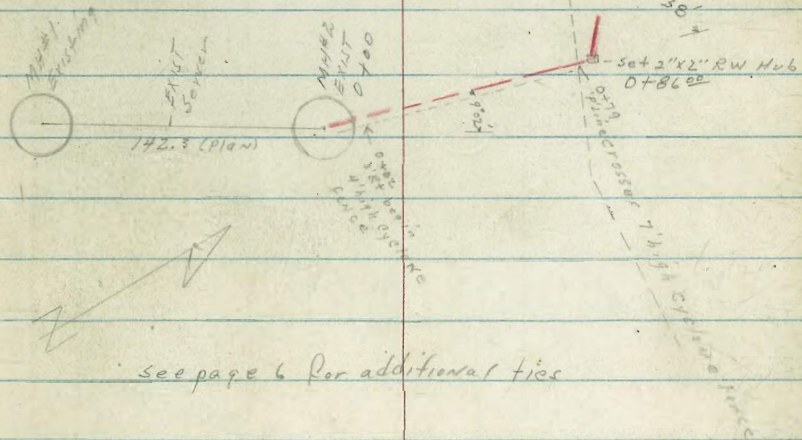 MH#1
Existing
EXIST
Sewer
MH#2
EXIST
0+00
38'
Set 2"x2" RW Hub
0+86.00
142.3 (Plan)
0+02
3' Rt begin
4' high cyclone
fence
0+79
line crosses 7' high cyclone fence
N
see page 6 for additional ties